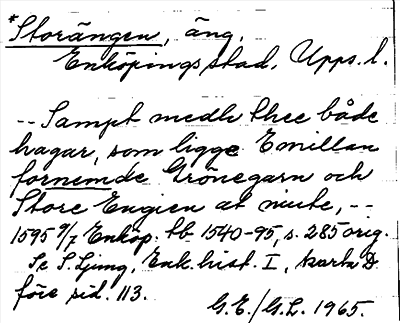 *Storängen, äng,
Enköpings stad, Upps. l.
-- Sampt medh thee både
hagar, som ligge Emillan
fornemde Grönegarn och
Store Engien at niute, --
1595 9/7 Enköp. tb 1540-95, s. 285 orig.
Se S. Ljung, Enk. hist. I, karta D
före sid. 113.
G.E./G.L. 1965.